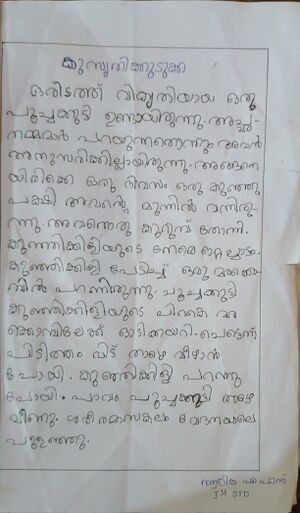 കുസൃതിക്കുടുക്ക
ഒരിടത്ത് വികൃതിയായ ഒരു
പൂച്ചക്കുട്ടി ഉണ്ടായിരുന്നു. അച്ഛ
നമ്മമാർ പറയുന്നതൊന്നും അവൻ
അനുസരിക്കില്ലായിരുന്നു. അങ്ങനെ
യിരിക്കെ ഒരു ദിവസം ഒരു കുഞ്ഞു
പക്ഷി അവൻ്റെ മുന്നിൽ വന്നിരു
ന്നു. അവനൊരു കുറുമ്പ് തോന്നി.
കുഞ്ഞിക്കിളിയുടെ നേരെ ഒറ്റ ചാട്ടം.
കുഞ്ഞിക്കിളി പേടിച്ച് ഒരു മരക്കൊ
മ്പിൽ പറന്നിരുന്നു. പൂച്ചക്കുട്ടി
കുഞ്ഞിക്കിളിയുടെ പിറകെ മര
ക്കൊമ്പിലേക്ക് ഓടിക്കയറി. പെട്ടെന്ന്
പിടിത്തം വിട്ട് താഴെ വീഴാൻ
പോയി. കുഞ്ഞിക്കിളി പറന്നു
പോയി. പാവം പൂച്ചക്കുട്ടി താഴെ
വീണു. ശരീരമാസകലം വേദനയാലെ
പുളഞ്ഞു.
STD